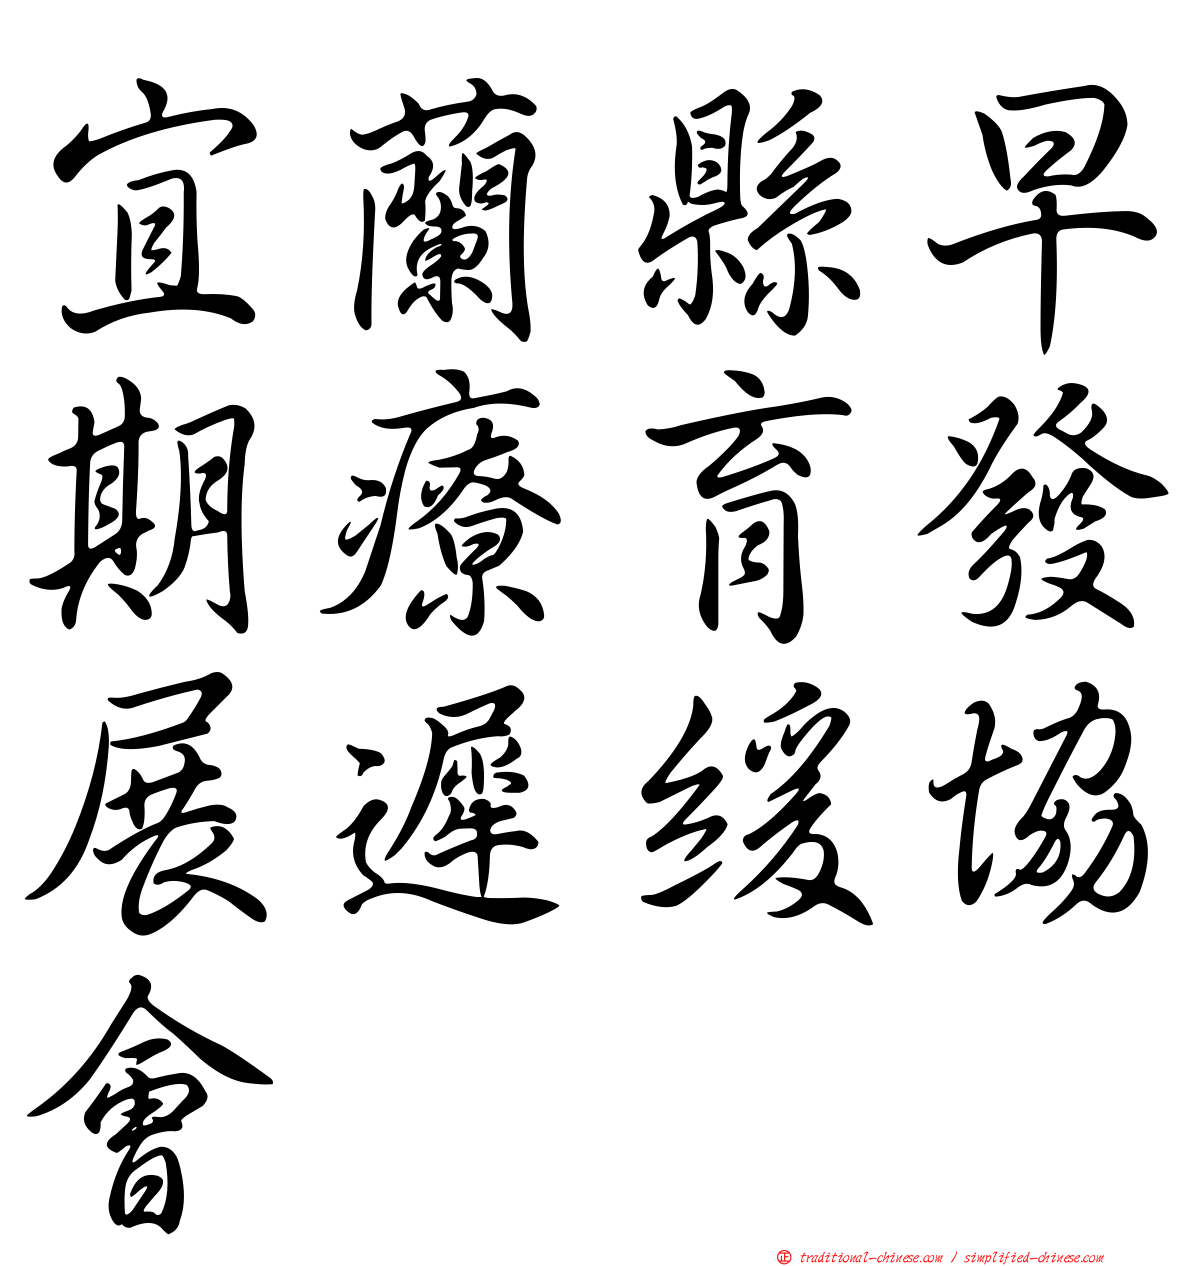 宜蘭縣早
期療育發
展遲緩協
會
㊣ traditional-chinese.com / simplified-chinese.com